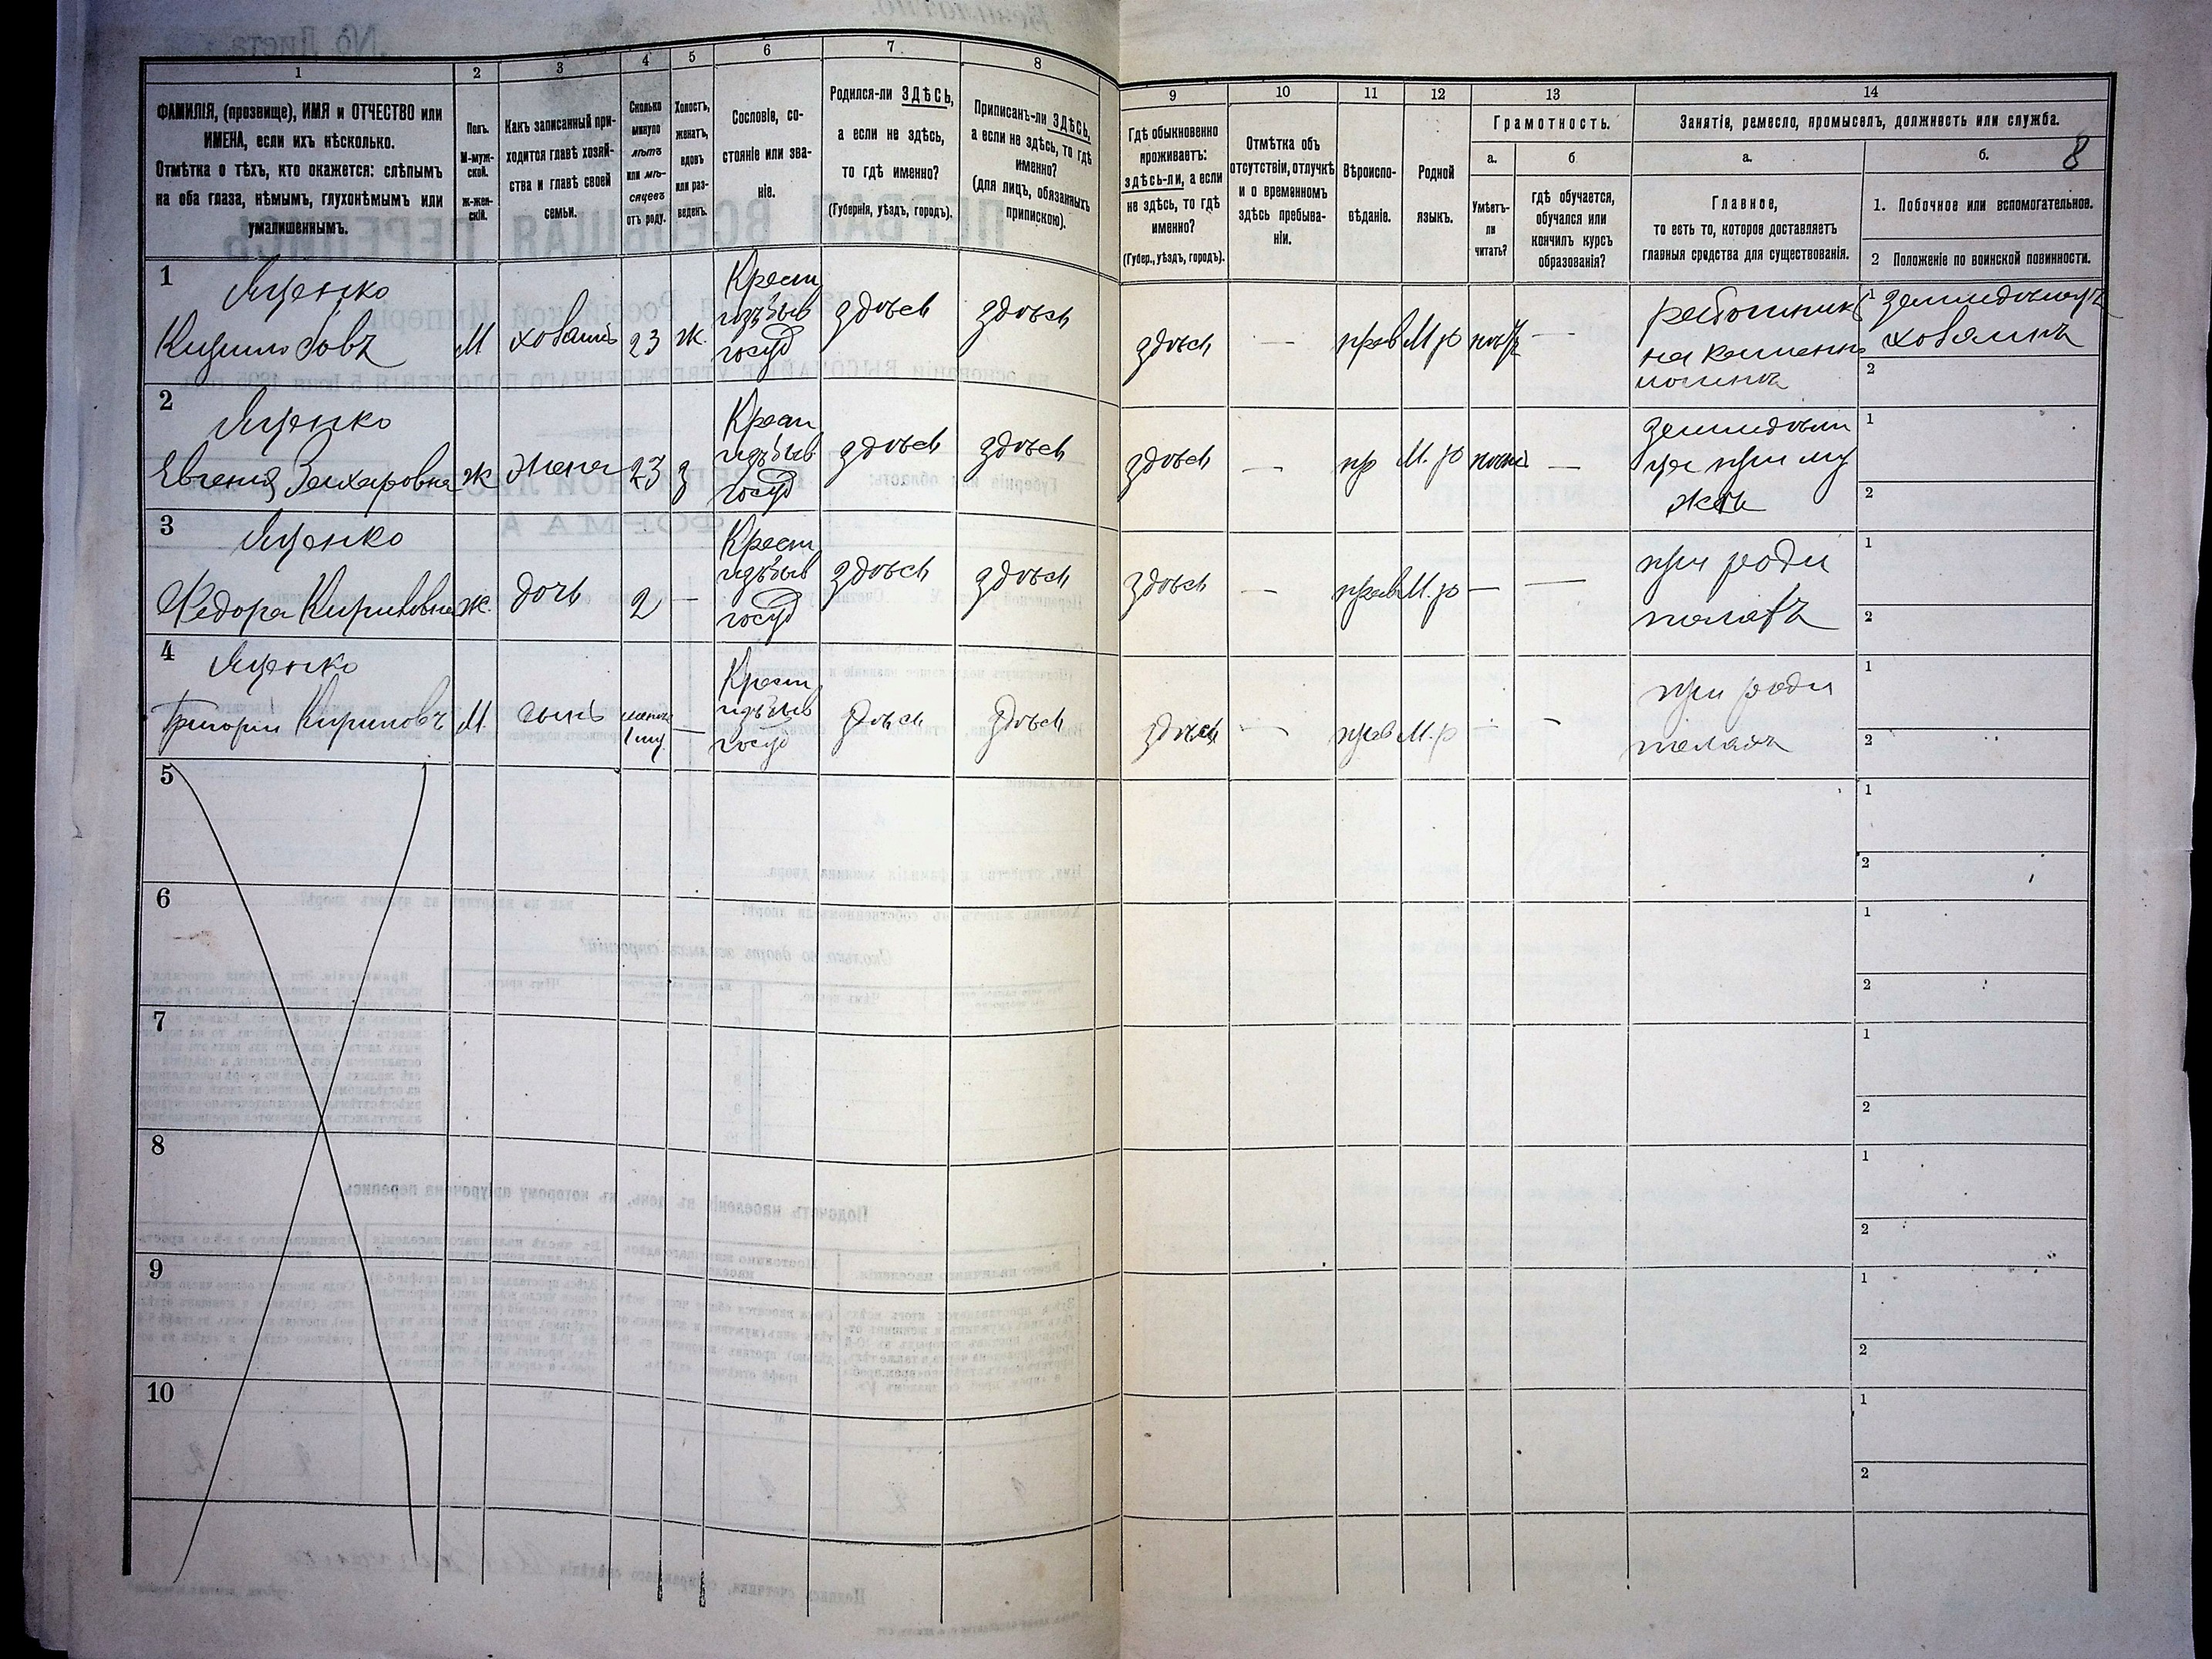 8
1
2
3
4
5
6
7
8
9
10
11
12
13
14
ФАМИЛІЯ, (прозвище), ИМЯ и ОТЧЕСТВО или
ИМЕНА, если ихъ нѣсколько.
Отмѣтка о тѣхъ, кто окажется: слѣпымъ
на оба глаза, нѣмымъ, глухонѣмымъ или
умалишеннымъ.
Полъ.
М-муж-
ской.
Ж-жен-
скій.
Какъ записанный при-
ходится главѣ хозяй-
ства и главѣ своей
семьи.
Сколько
минуло
лѣтъ
или мѣ-
сяцевъ
отъ роду.
Холостъ,
женатъ,
вдовъ
или раз-
веденъ.
Сословіе, со-
стояніе или зва-
ніе.
Родился-ли ЗДѢСЬ,
а если не здѣсь,
то гдѣ именно?
(Губернія, уѣздъ, городъ).
Приписанъ-ли ЗДѢСЬ,
а если не здѣсь, то гдѣ
именно?
(для лицъ, обязанныхъ
припискою).
Гдѣ обыкновенно
проживаетъ:
здѣсь-ли, а если
не здѣсь, то гдѣ
именно?
(Губер., уѣздъ, городъ).
Отмѣтка объ
отсутствіи, отлучкѣ
и о временномъ
здѣсь пребыва-
ніи.
Вѣроиспо-
вѣданіе.
Родной
языкъ.
Грамотность.
а.
Умѣетъ-
ли
читать?
б
гдѣ обучается,
обучался или
кончилъ курсъ
образованія?
Занятіе, ремесло, промыселъ, должность или служба.
а.
Главное,
то есть то, которое доставляетъ
главныя средства для существованія.
б.
1. Побочное или вспомогательное.
2 Положеніе по воинской повинности.
1
Яценко
М
23
ж.
Крест
изъ быв
госуд
здѣсь
здѣсь
здѣсь
—
прав
М р
—
работникъ
на
1
хозяинъ
2
2
Яценко
Евгенія Захаровна
ж
жена
23
з
Крест
изъ быв
госуд
здѣсь
здѣсь
здѣсь
—
пр
М. р
—
при му
жѣ
1
2
3
Яценко
Федора Кириловна
ж.
дочь
2
—
Крест
изъ быв
госуд
здѣсь
здѣсь
здѣсь
—
прав
М. р
—
—
при роди
теляхъ
1
2
4
Яценко
Григорій Кириловъ
М.
сынъ
—
Крест
изъ быв
госуд
здѣсь
здѣсь
здѣсь
—
прав
М. р
—
—
при роди
теляхъ
1
2
5
1
2
6
1
2
7
1
2
8
1
2
9
1
2
10
1
2